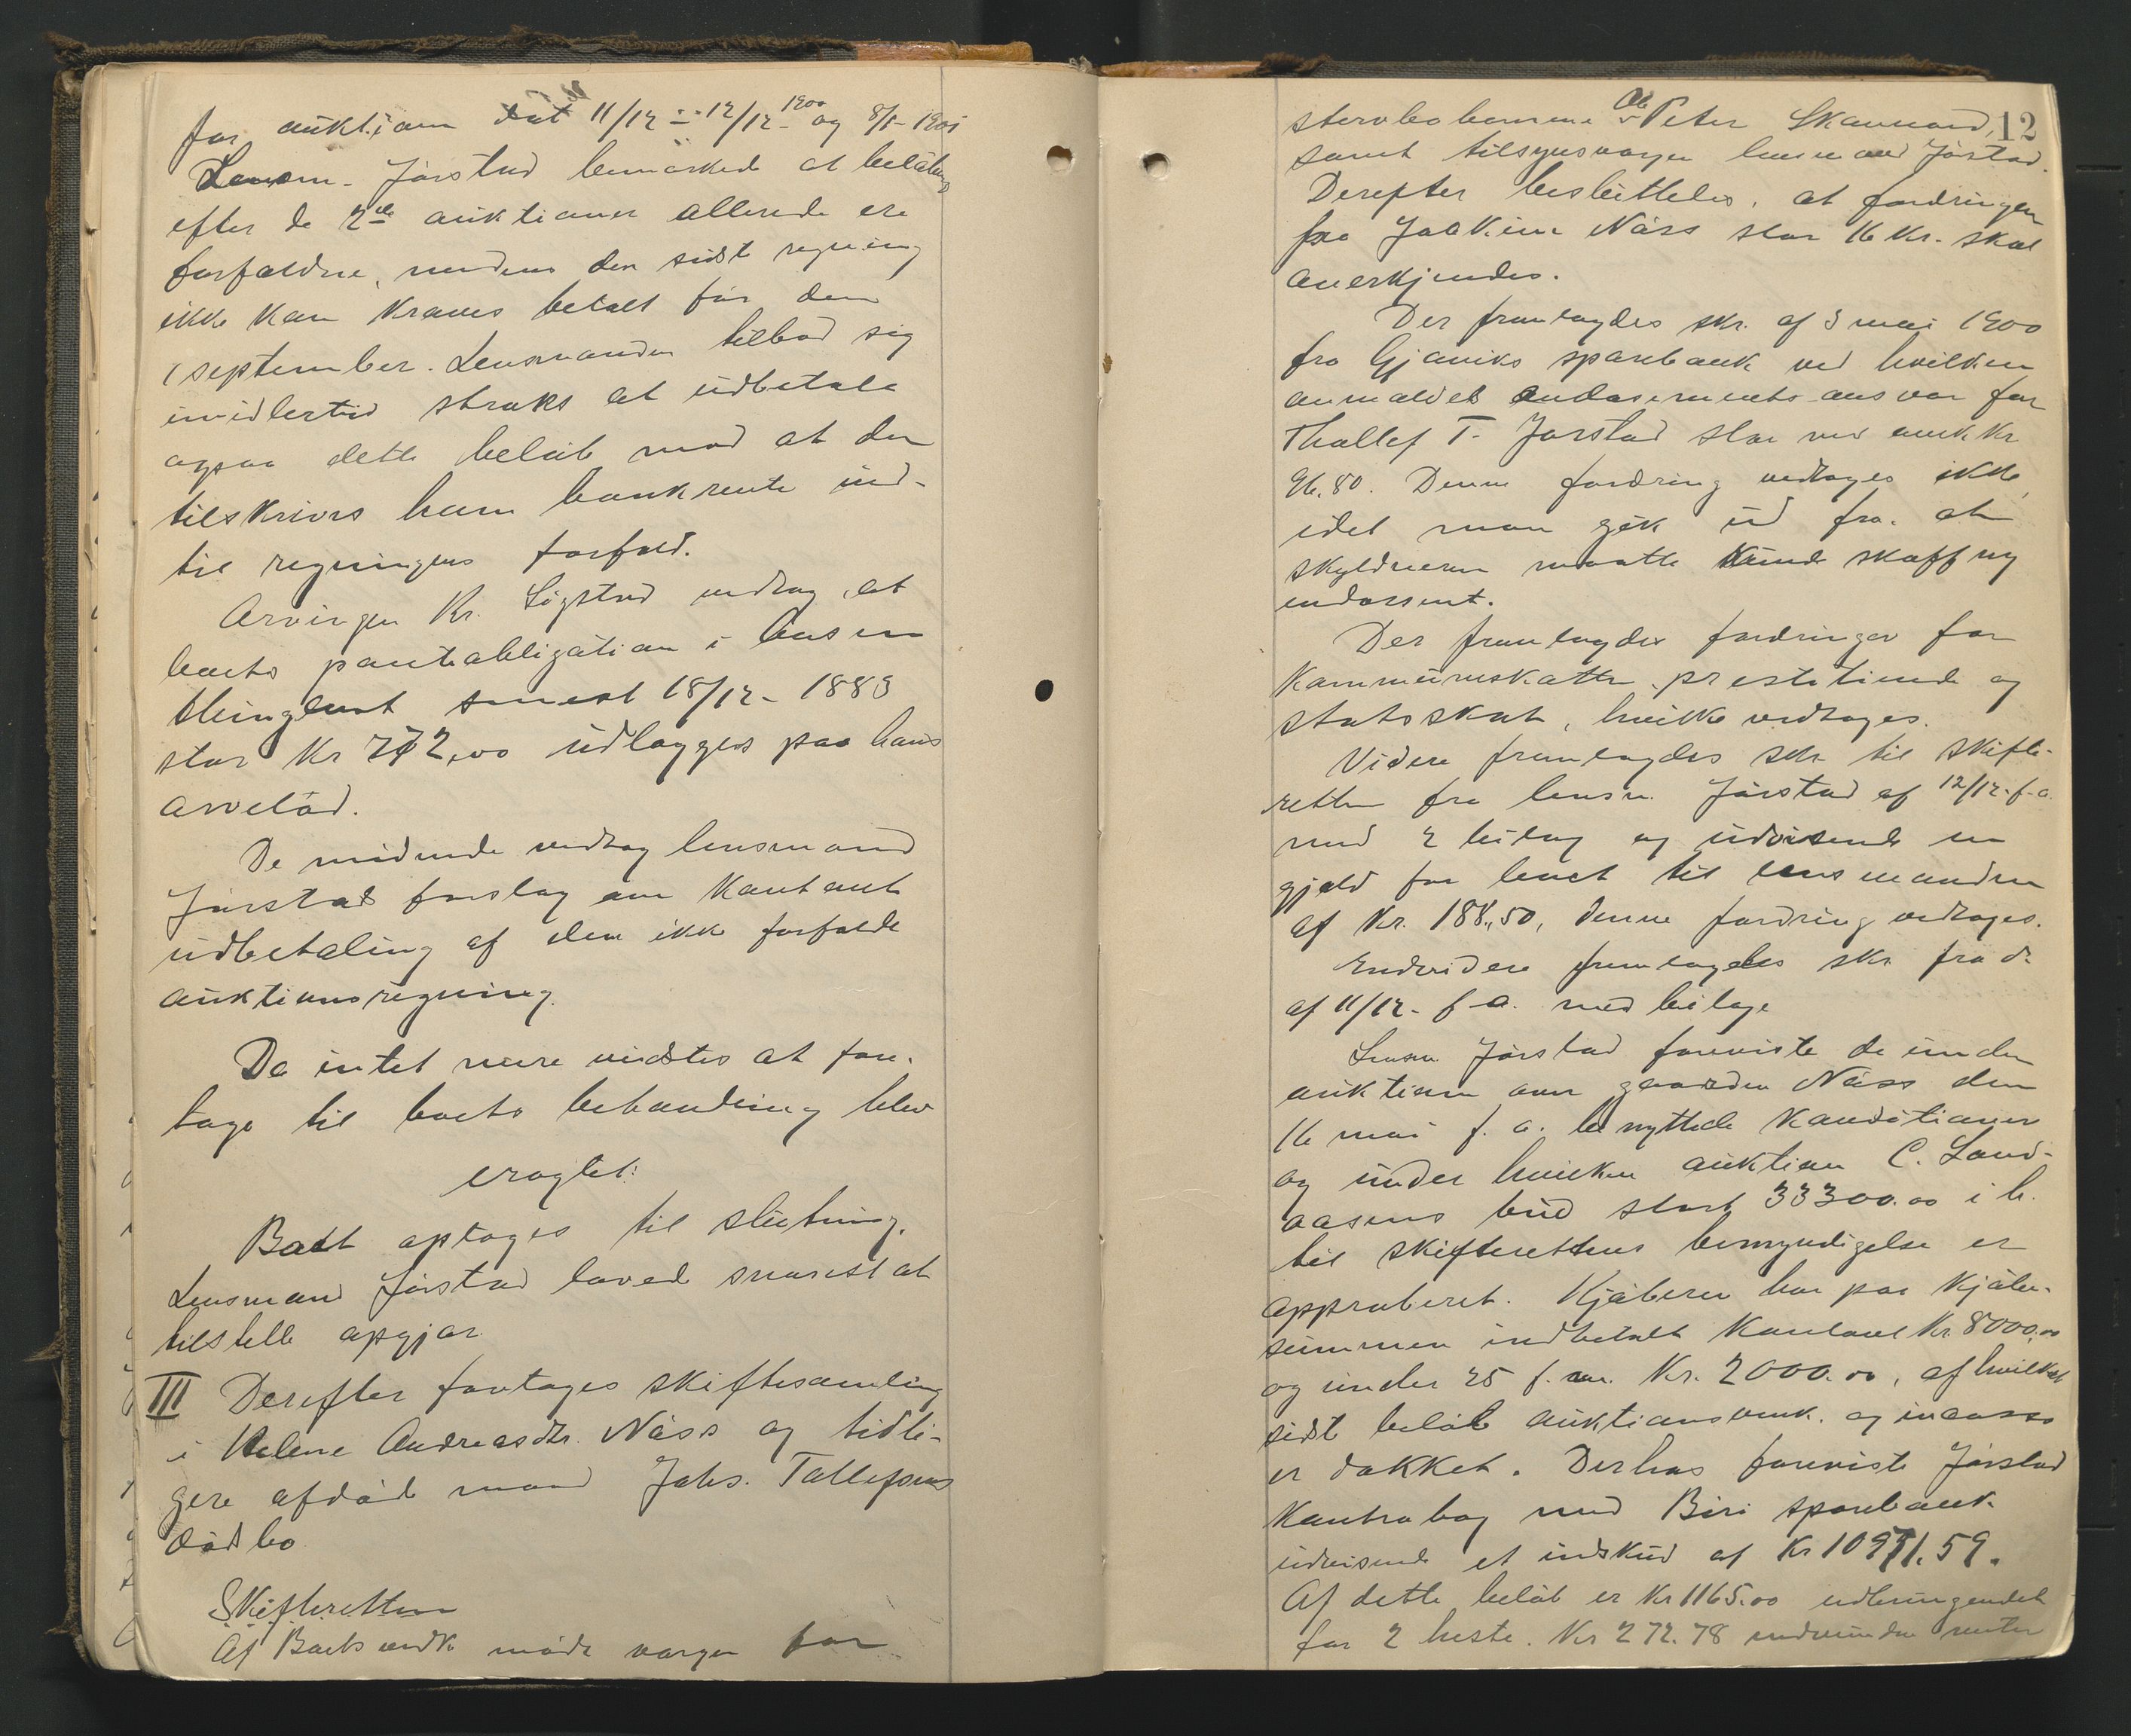 for auktion dat 11/12 - 12/12 - 1900 og 8/1 - 1901
Lensm. Jørstad bemærkede at beløbene
efter de 2de auktioner allerede ere
forfaldne, medens den sidste regning
ikke kan kræves betalt før den
1 september. Lensmanden tilbød sig
imidlertid straks at udbetale
ogsaa dette beløb mod at der
tilskrives ham bankrente ind-
til regningens forfald.
Arvingen Kr. Sigstad vedtog, at
boets panteobligation i hans en
thinglæst senest 18/12 - 1889
stor Kr 772,00 udlægges paa hans
arvelod.
De mødende vedtog lensmand
Jørstads forslag om kontant
udbetaling af den ikke forfaldne
auktionsregning.
Da intet mere vidstes at fore-
tage til boets behandling blev
eragtet:
Boet optages til slutning.
Lensmand Jørstad loved snarest at
tilstille opgjør.
III Derefter foretages skiftesamling
i Helene Andreasdtr. Næss og tidli-
gere afdøde mand Johs. Tollefsens
dødsbo
Skifteretten
Af Boets vedk. mødte værgen for
12
stervboberne Ole Peter Skaunord,
samt tilsynsværgen lensmand Jørstad.
Derefter besluttedes, at fordringen
fra Joakim Næss stor 16 Kr. skal
anerkjendes.
Der fremlagdes skr. af 3 mai 1900
fra Gjøviks sparebank ved hvilken
anmeldes endosements ansvar for
Thollef T. Jørstad stor ved omk Kr
96.80. Denne fordring vedtages ikke,
idet man gik ud fra, at
skyldneren maatte kunde skaffe ny
endossent.
Der fremlagdes fordringer for
kommuneskatter, prestetiende og
statsskat, hvilke vedtages.
Videre fremlagdes skr til skifte-
retten fra lensm. Jørstad af 12/12 f. a.
med 2 bilag og udvisende en
gjæld for boet til lensmanden
af Kr. 188,50, denne fordring vedtages.
Endvidere fremlagdes skr fra d.
af 11/12 - f a. med bilage
Lensm Jørstad foreviste de under
auktion over gaarden Næss den
16 mai f. a. benyttede konditioner
og under hvilken auktion C. Land-
aasens bud stort 33300.00 i h.
til skifterettens bemyndigelse er
approberet. Kjøberen har paa kjøbe-
summen indbetalt kontant Kr. 8000,00
og under 25 f. m. Kr. 2000.00, af hvilket
sidste beløb auktionsomk. og incasso
er dækket. Derhos foreviste Jørstad
kontrabog med Biri sparebank
udvisende et indskud af Kr 10971.59.
Af dette beløb er Kr 1165.00 udbringendet
for 2 heste. Kr 272.78 renter